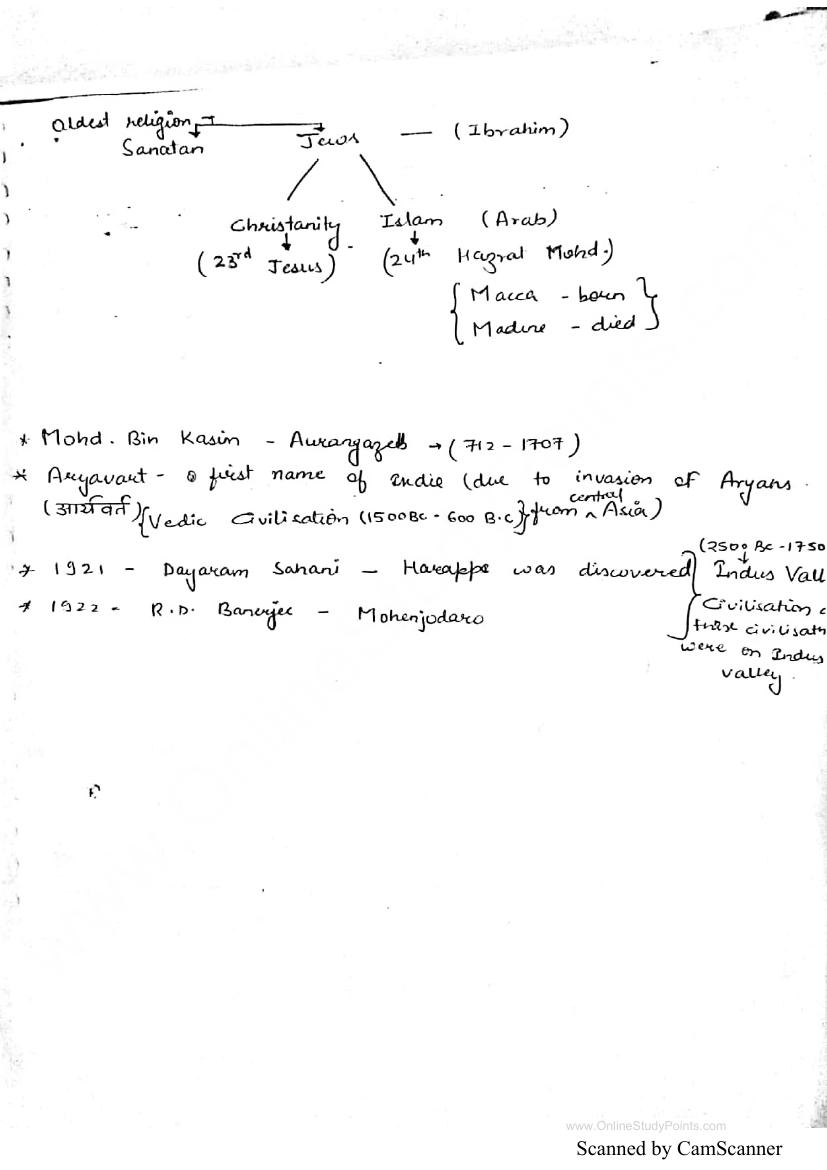 Oldest religion
Sanatan
Jews — (Ibrahim)
Christanity Islam (Arab)
(23rd Jesus) (24th Hazrat Mohd.)
{ Macca - born }
{ Madine - died }
* Mohd. Bin Kasin - Aurangazeb → (712 - 1707)
* Aryavart - first name of Indie (due to invasion of Aryans.
(आर्यवर्त) {Vedic Civilisation (1500BC - 600 B.C)} from central Asia)
* 1921 - Dayaram Sahani - Harappe was discovered
* 1922 - R.D. Banerjee - Mohenjodaro
(2500 BC - 1750
Indus Vall
Civilisation
these civilisat
were on Indus
valley.
www.OnlineStudyPoints.com
Scanned by CamScanner